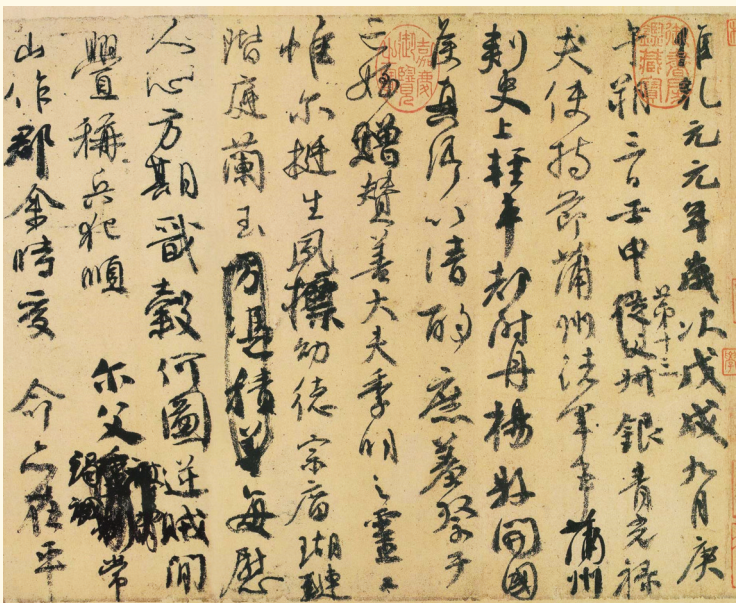 維乾元元年歲次戊戌九月庚
午朔三日壬申第十三從父銀青光祿
夫使持節蒲州諸軍事蒲州
刺史上輕車都尉丹楊縣開國
侯真卿以清酌庶羞祭于
亡姪贈贊善大夫季明之靈曰
惟尔挺生夙標幼德宗廟瑚璉
階庭蘭玉方憑積善每慰
人心方期戩穀何圖逆賊閒
釁稱兵犯順尔父常
山作郡余時受命亦在平
御書房鑑藏寶
嘉慶御覽之寶